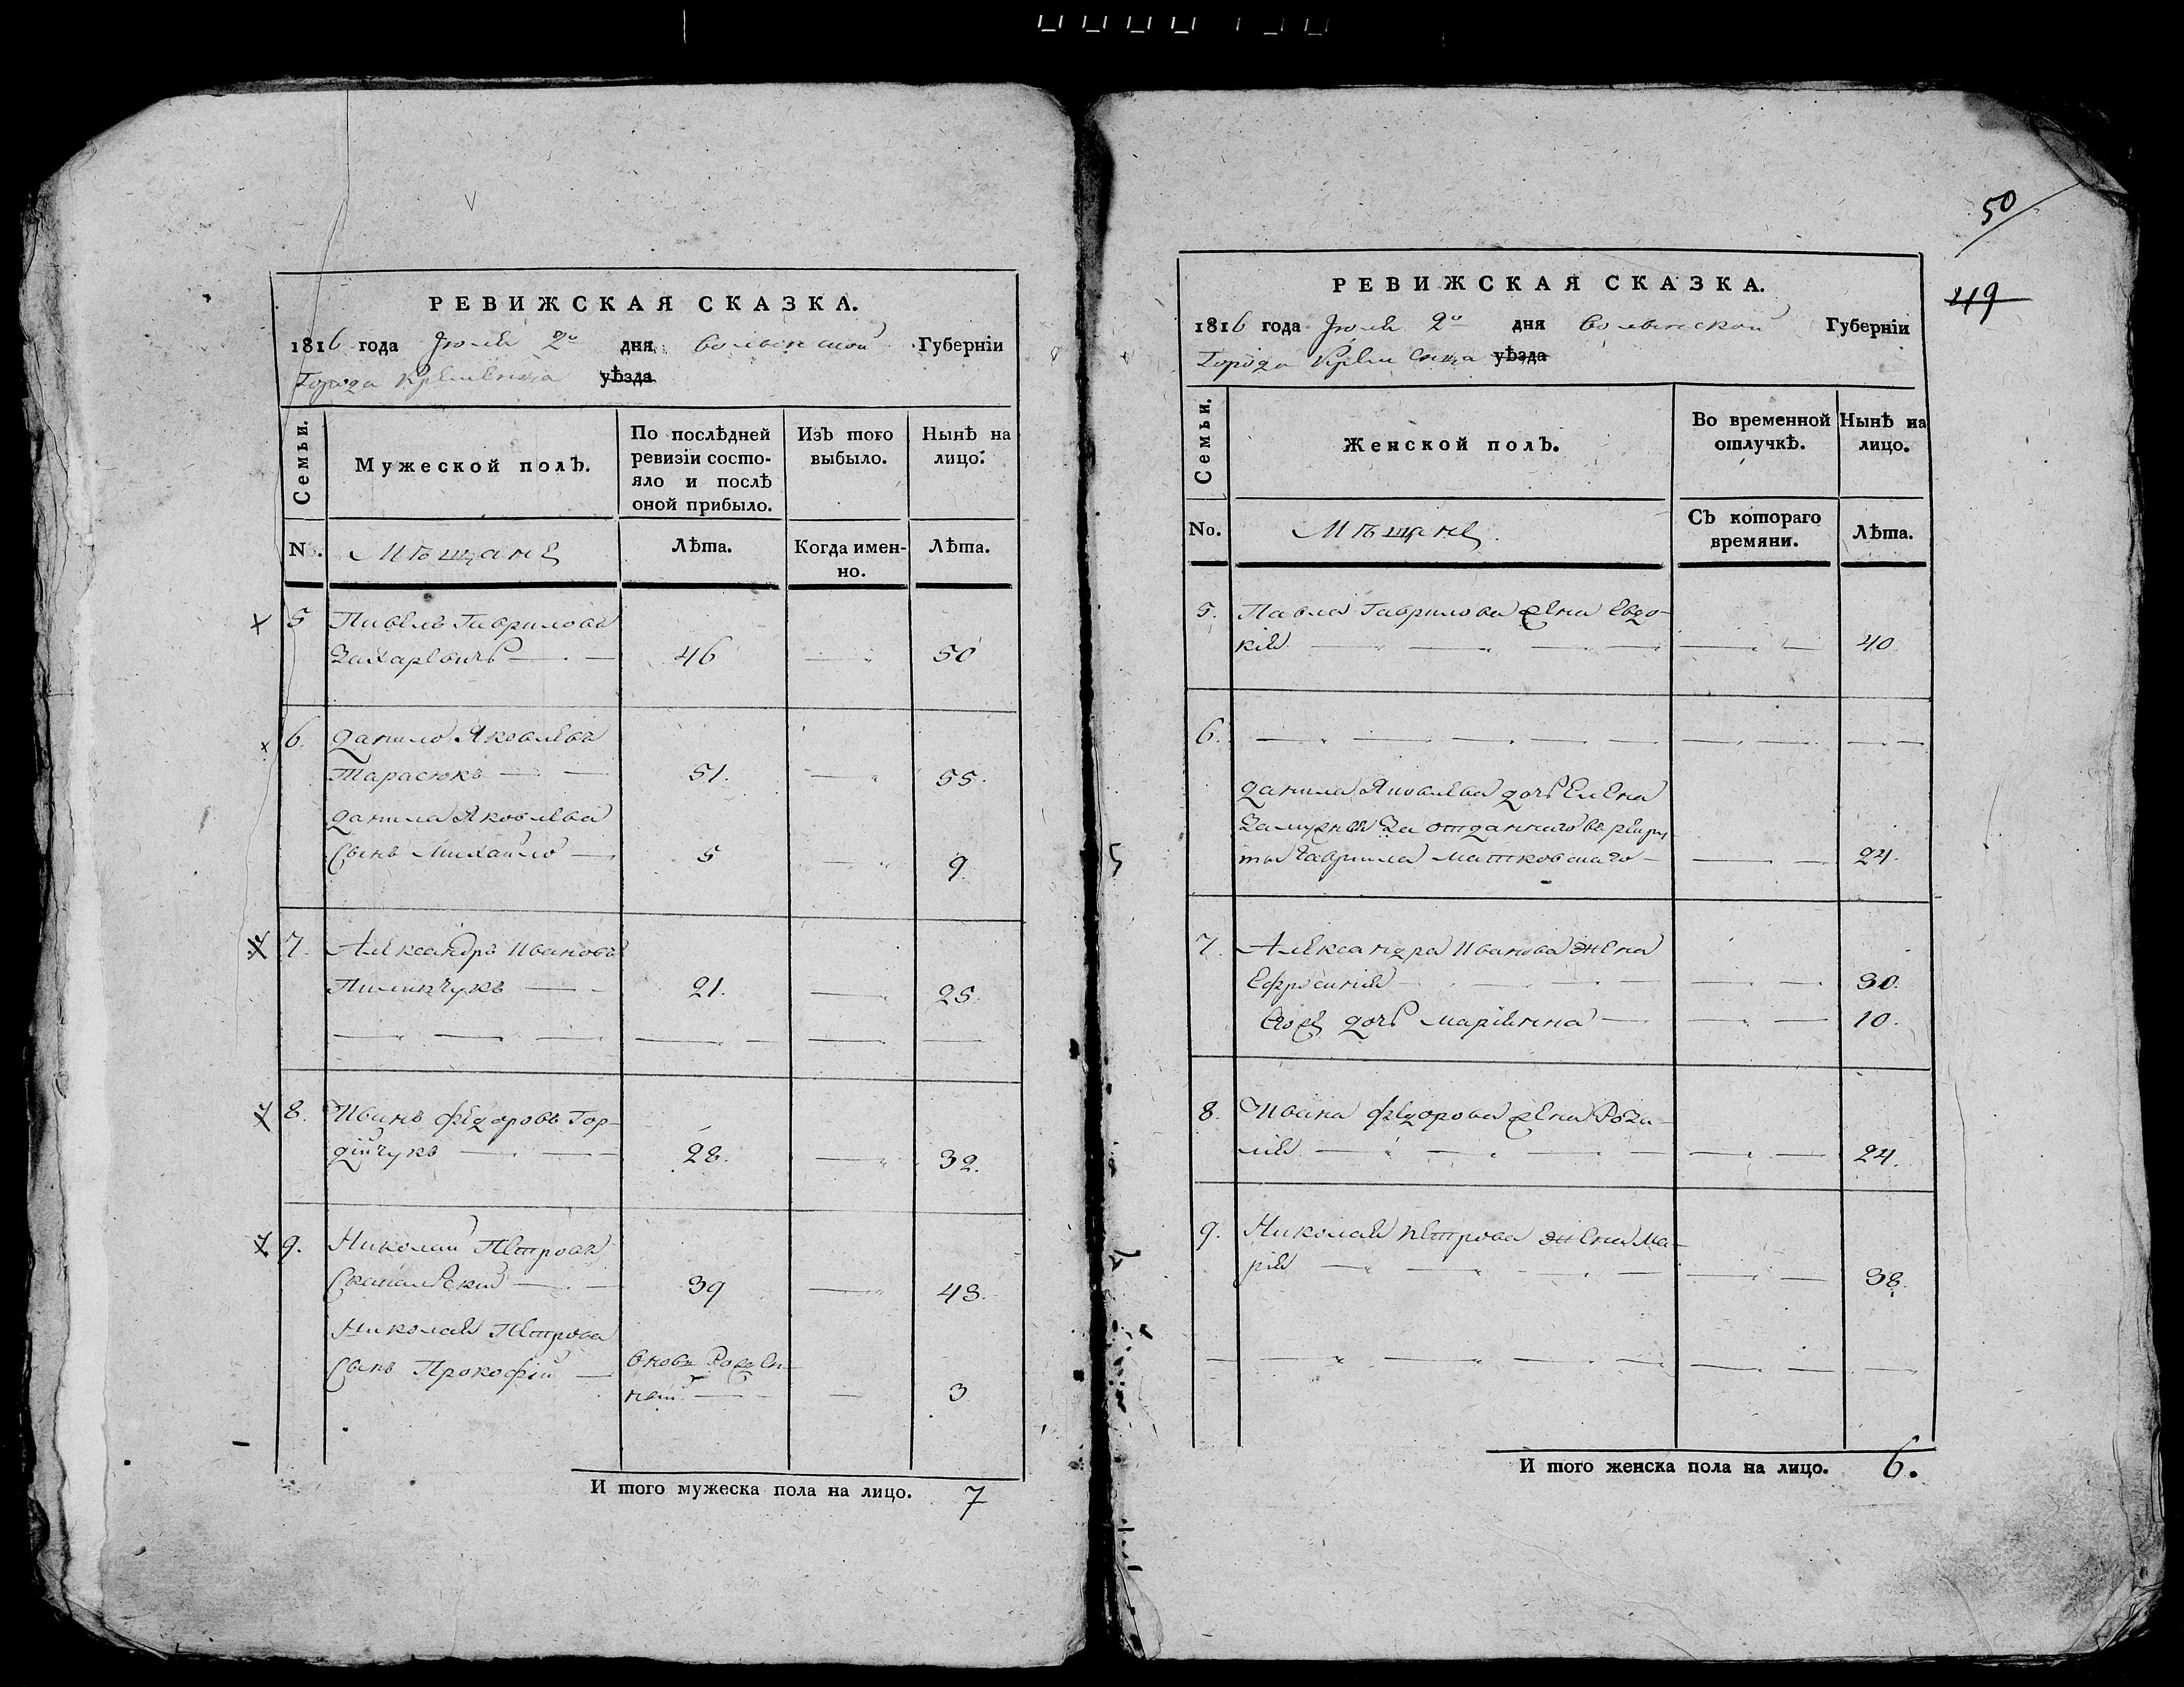 РЕВИЖСКАЯ СКАЗКА.
1816 года Июля 2го дня Волынской Губерніи
Города Кременца уѣзда
Семьи.
Мужеской полъ.
По послѣдней ревизіи состояло и послѣ оной прибыло.
Изъ того выбыло.
Нынѣ на лицо.
No.
Мѣщане
Лѣта.
Когда именно.
Лѣта.
5 Павелъ Гавриловъ
Захаревичъ 46 50
6. Данило Яковлевъ
Тарасюкъ 51. 55.
Данила Яковлева
Сынъ Михайло 5 9
7. Александръ Ивановъ
21. 25.
8. Иванъ Федоровъ Гор-
дійчукъ 28. 32.
9. Николай Петровъ
39 43.
Николая Петрова
Сынъ Прокофій вновь Рожден-
ный 3
И того мужеска пола на лицо. 7
50
49
РЕВИЖСКАЯ СКАЗКА.
1816 года Июля 2го дня Волынской Губерніи
Города Кременца уѣзда
Семьи.
Женской полъ.
Во временной отлучкѣ.
Нынѣ на лицо.
No.
Мѣщане
Съ котораго времяни.
Лѣта.
5. Павла Гаврилова жена Евдо-
кія 40
6.
Данила Яковлева дочь Елена
Замужня за отданного въ рекру
ты Гаврила Матковскаго 24.
7. Александра Иванова жена
Ефросинія 30.
Его же дочь Маріянна 10.
8. Ивана Федорова жена Роза-
лія 24.
9. Николая Петрова жена Ма-
рія 38.
И того женска пола на лицо. 6.